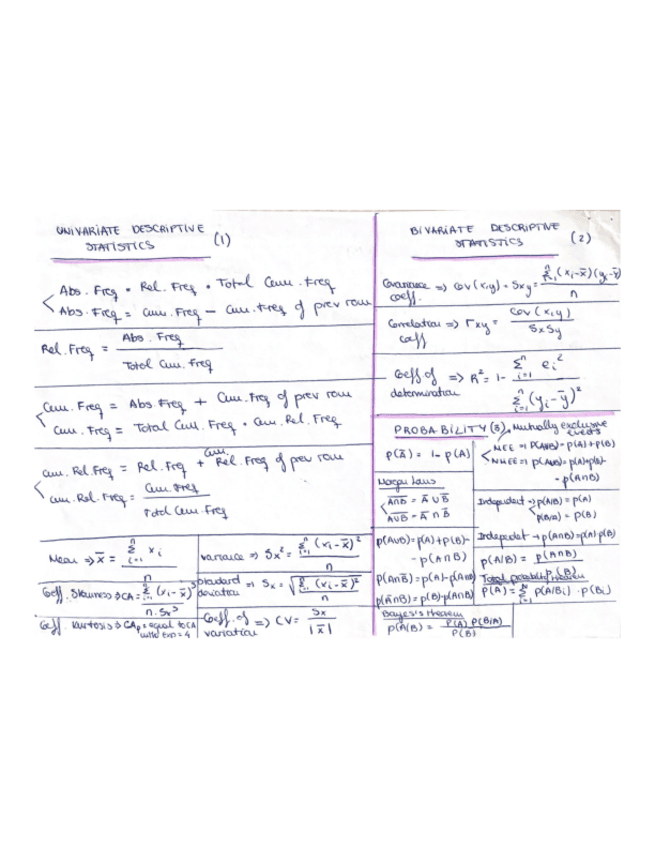 UNIVARIATE DESCRIPTIVE STATISTICS (1)
Abs. Freq = Rel. Freq * Total Cum. Freq
Abs. Freq = Cum. Freq - Cum. Freq of prev row
Rel. Freq = Abs. Freq / Total Cum. Freq
Cum. Freq = Abs. Freq + Cum. Freq of prev row
Cum. Freq = Total Cum. Freq * Cum. Rel. Freq
Cum. Rel. Freq = Rel. Freq + Cum. Rel. Freq of prev row
Cum. Rel. Freq = Cum. Freq / Total Cum. Freq
Mean => x̄ = Σ(i=1 to n) xi / n
Variance => Sx² = Σ(i=1 to n) (xi - x̄)² / n
Coeff. Skewness => CA = Σ(i=1 to n) (xi - x̄)³ / n·Sx³
Standard deviation => Sx = √(Σ(i=1 to n) (xi - x̄)² / n)
Coeff. Kurtosis => CAp = equal to CA with exp = 4
Coeff. of variation => CV = Sx / |x̄|
BIVARIATE DESCRIPTIVE STATISTICS (2)
Covariance coeff. => Cov(x,y) = Sxy = Σ(i=1 to n) (xi - x̄)(yi - ȳ) / n
Correlation coeff => rxy = Cov(x,y) / SxSy
Coeff of determination => R² = 1 - Σ(i=1 to n) ei² / Σ(i=1 to n) (yi - ȳ)²
PROBABILITY (3)
Mutually exclusive events
P(Ā) = 1 - P(A)
MEE => P(A∪B) = P(A) + P(B)
NMEE => P(A∪B) = P(A) + P(B) - P(A∩B)
Morgan Laws
A∩B (overlined) = Ā ∪ B̄
A∪B (overlined) = Ā ∩ B̄
Independent -> P(A/B) = P(A)
P(B/A) = P(B)
P(A∪B) = P(A) + P(B) - P(A∩B)
Independent -> P(A∩B) = P(A)·P(B)
P(A/B) = P(A∩B) / P(B)
P(A∩B̄) = P(A) - P(A∩B)
P(Ā∩B) = P(B) - P(A∩B)
Total probability theorem
P(A) = Σ(i=1 to n) P(A/Bi) · P(Bi)
Bayes's theorem
P(A/B) = P(A) P(B/A) / P(B)